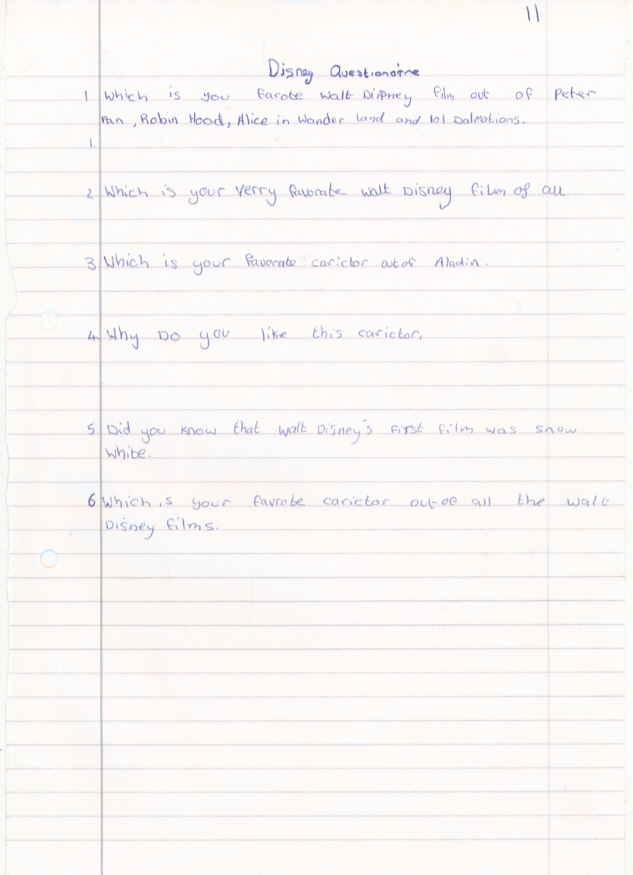 11
Disney Questionaire
1 Which is you farote Walt Disney film out of Peter
Pan, Robin Hood, Alice in Wonder land and 101 Dalmations.
1.
2 Which is your verry favorate walt Disney film of all
3 Which is your favorate carictor out of Aladin.
4. Why Do you like this carictor.
5 Did you know that Walt Disney's First film was snow
White.
6 Which is your favrote carictor out of all the Walt
Disney films.